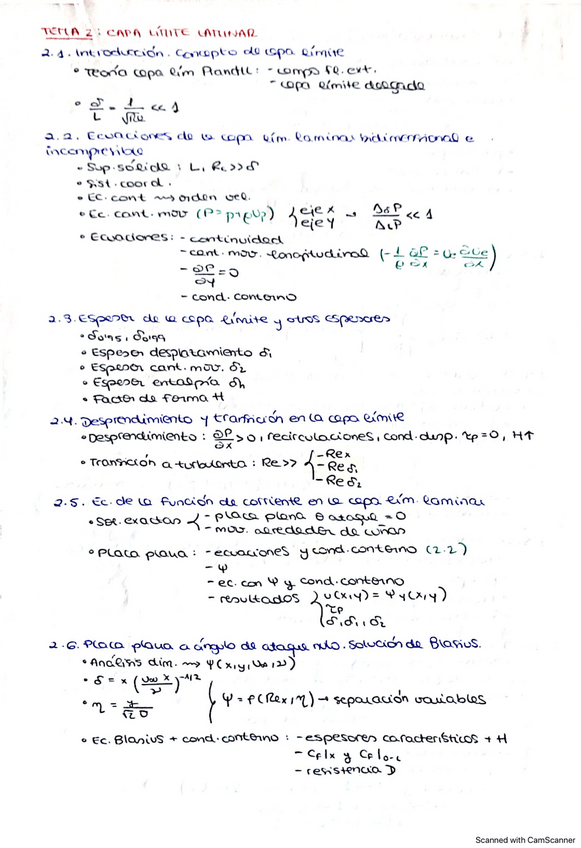 TEMA 2: CAPA LÍMITE LAMINAR
2.1. Introducción. Concepto de capa límite
• Teoría capa lím Prandtl: - campo fl. ext.
- capa límite delgada
• δ/L = 1/√Re << 1
2.2. Ecuaciones de la capa lím. laminar bidimensional e
incompresible
• Sup. sólida: L, Rc >> δ
• Sist. coord.
• Ec. cont ⇝ orden vel.
• Ec. cant. mov (P = p + ρUp) { eje x → ΔδP/ΔLP << 1
eje y
• Ecuaciones: - continuidad
- cant. mov. longitudinal (-1/ρ ∂P/∂x = Ue ∂Ue/∂x)
- ∂P/∂y = 0
- cond. contorno
2.3. Espesor de la capa límite y otros espesores
• δ0'95, δ0'99
• Espesor desplazamiento δ1
• Espesor cant. mov. δ2
• Espesor entalpía δh
• Factor de forma H
2.4. Desprendimiento y transición en la capa límite
• Desprendimiento: ∂P/∂x > 0, recirculaciones, cond. desp. τp = 0, H↑
• Transición a turbulenta: Re >> { - Rex
- Reδ1
- Reδ2
2.5. Ec. de la función de corriente en la capa lím. laminar
• Sol. exactas { - placa plana θ ataque = 0
- mov. alrededor de cuñas
• Placa plana: - ecuaciones y cond. contorno (2.2)
- Ψ
- ec. con Ψ y cond. contorno
- resultados } u(x,y) = Ψy(x,y)
τp
δ, δ1, δ2
2.6. Placa plana a ángulo de ataque nulo. Solución de Blasius.
• Análisis dim. ⇝ Ψ(x, y, U∞, ν)
• δ = x (U∞ x/ν)^-1/2
• η = y/√2 δ { Ψ = f(Rex, η) → separación variables
• Ec. Blasius + cond. contorno: - espesores característicos + H
- Cf|x y CF|0-L
- resistencia D
Scanned with CamScanner